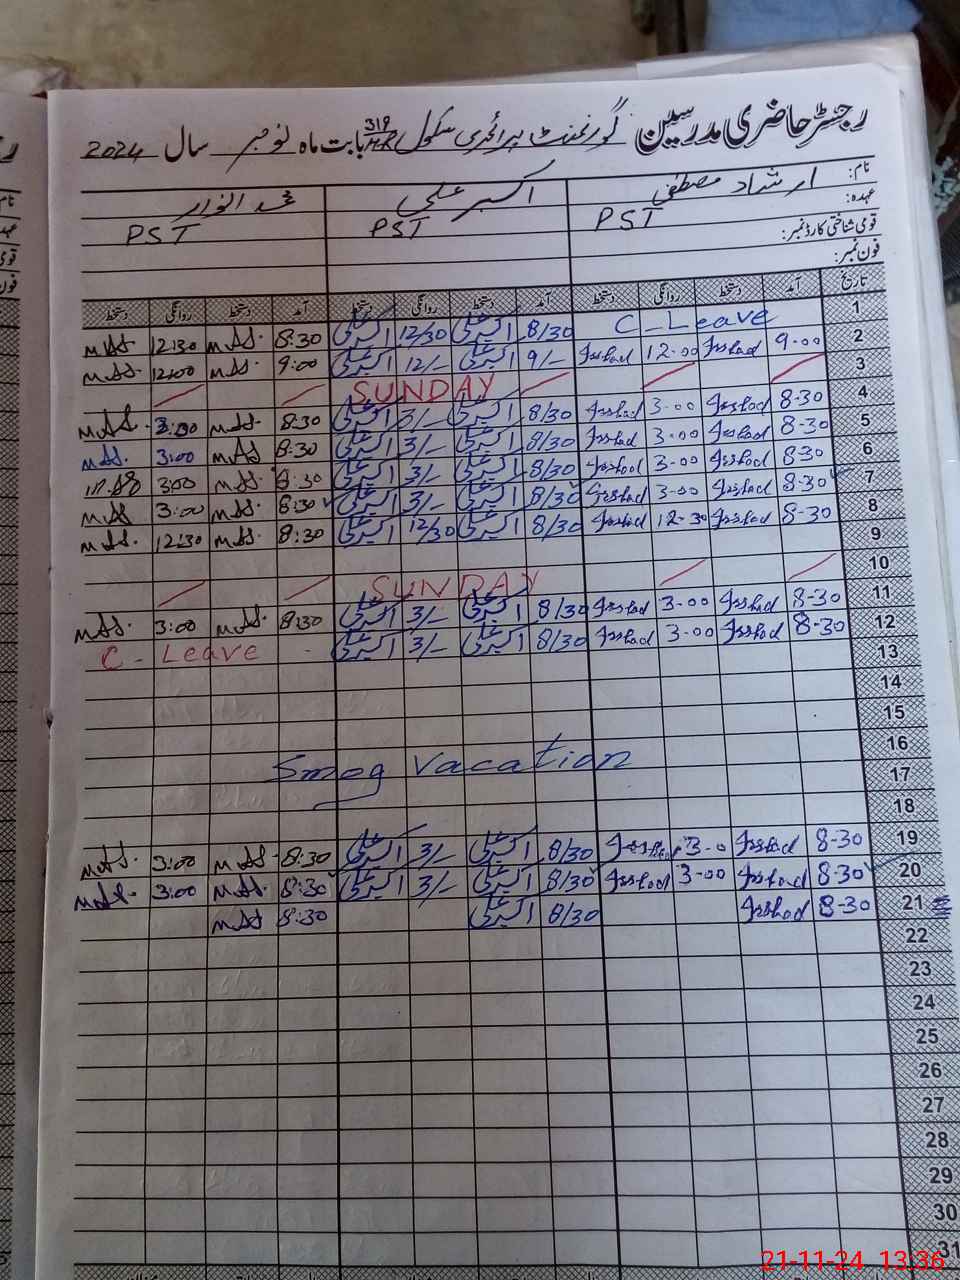 رجسٹر حاضری مدرسین گورنمنٹ پرائمری سکول 319/HR بابت ماہ نومبر سال 2024
نام: ارشاد مصطفی اکبر علی
عہدہ: PST PST PST
قومی شناختی کارڈ نمبر:
فون نمبر:
تاریخ آمد دستخط روانگی دستخط آمد دستخط روانگی دستخط آمد دستخط روانگی دستخط
1 C-Leave 8/30 اکبر علی 12/30 اکبر علی 8:30 12:30
2 9-00 Irshad 12-00 Irshad 9/- اکبر علی 12/- اکبر علی 9:00 12:00
3 SUNDAY
4 8-30 Irshad 3-00 Irshad 8/30 اکبر علی 3/- اکبر علی 8:30 3:00
5 8-30 Irshad 3-00 Irshad 8/30 اکبر علی 3/- اکبر علی 8:30 3:00
6 8-30 Irshad 3-00 Irshad 8/30 اکبر علی 3/- اکبر علی 8:30 3:00
7 8-30 Irshad 3-00 Irshad 8/30 اکبر علی 3/- اکبر علی 8:30 3:00
8 8-30 Irshad 12-30 Irshad 8/30 اکبر علی 12/30 اکبر علی 8:30 12:30
9
10 SUNDAY
11 8-30 Irshad 3-00 Irshad 8/30 اکبر علی 3/- اکبر علی 8:30 3:00
12 8-30 Irshad 3-00 Irshad 8/30 اکبر علی 3/- اکبر علی C-Leave
13
14
15
16
Smog vacation
17
18
19 8-30 Irshad 3-0 Irshad 8/30 اکبر علی 3/- اکبر علی 8:30 3:00
20 8-30 Irshad 3-00 Irshad 8/30 اکبر علی 3/- اکبر علی 8:30 3:00
21 8-30 Irshad 8/30 اکبر علی 8:30
22
23
24
25
26
27
28
29
30
31
21-11-24 13:36